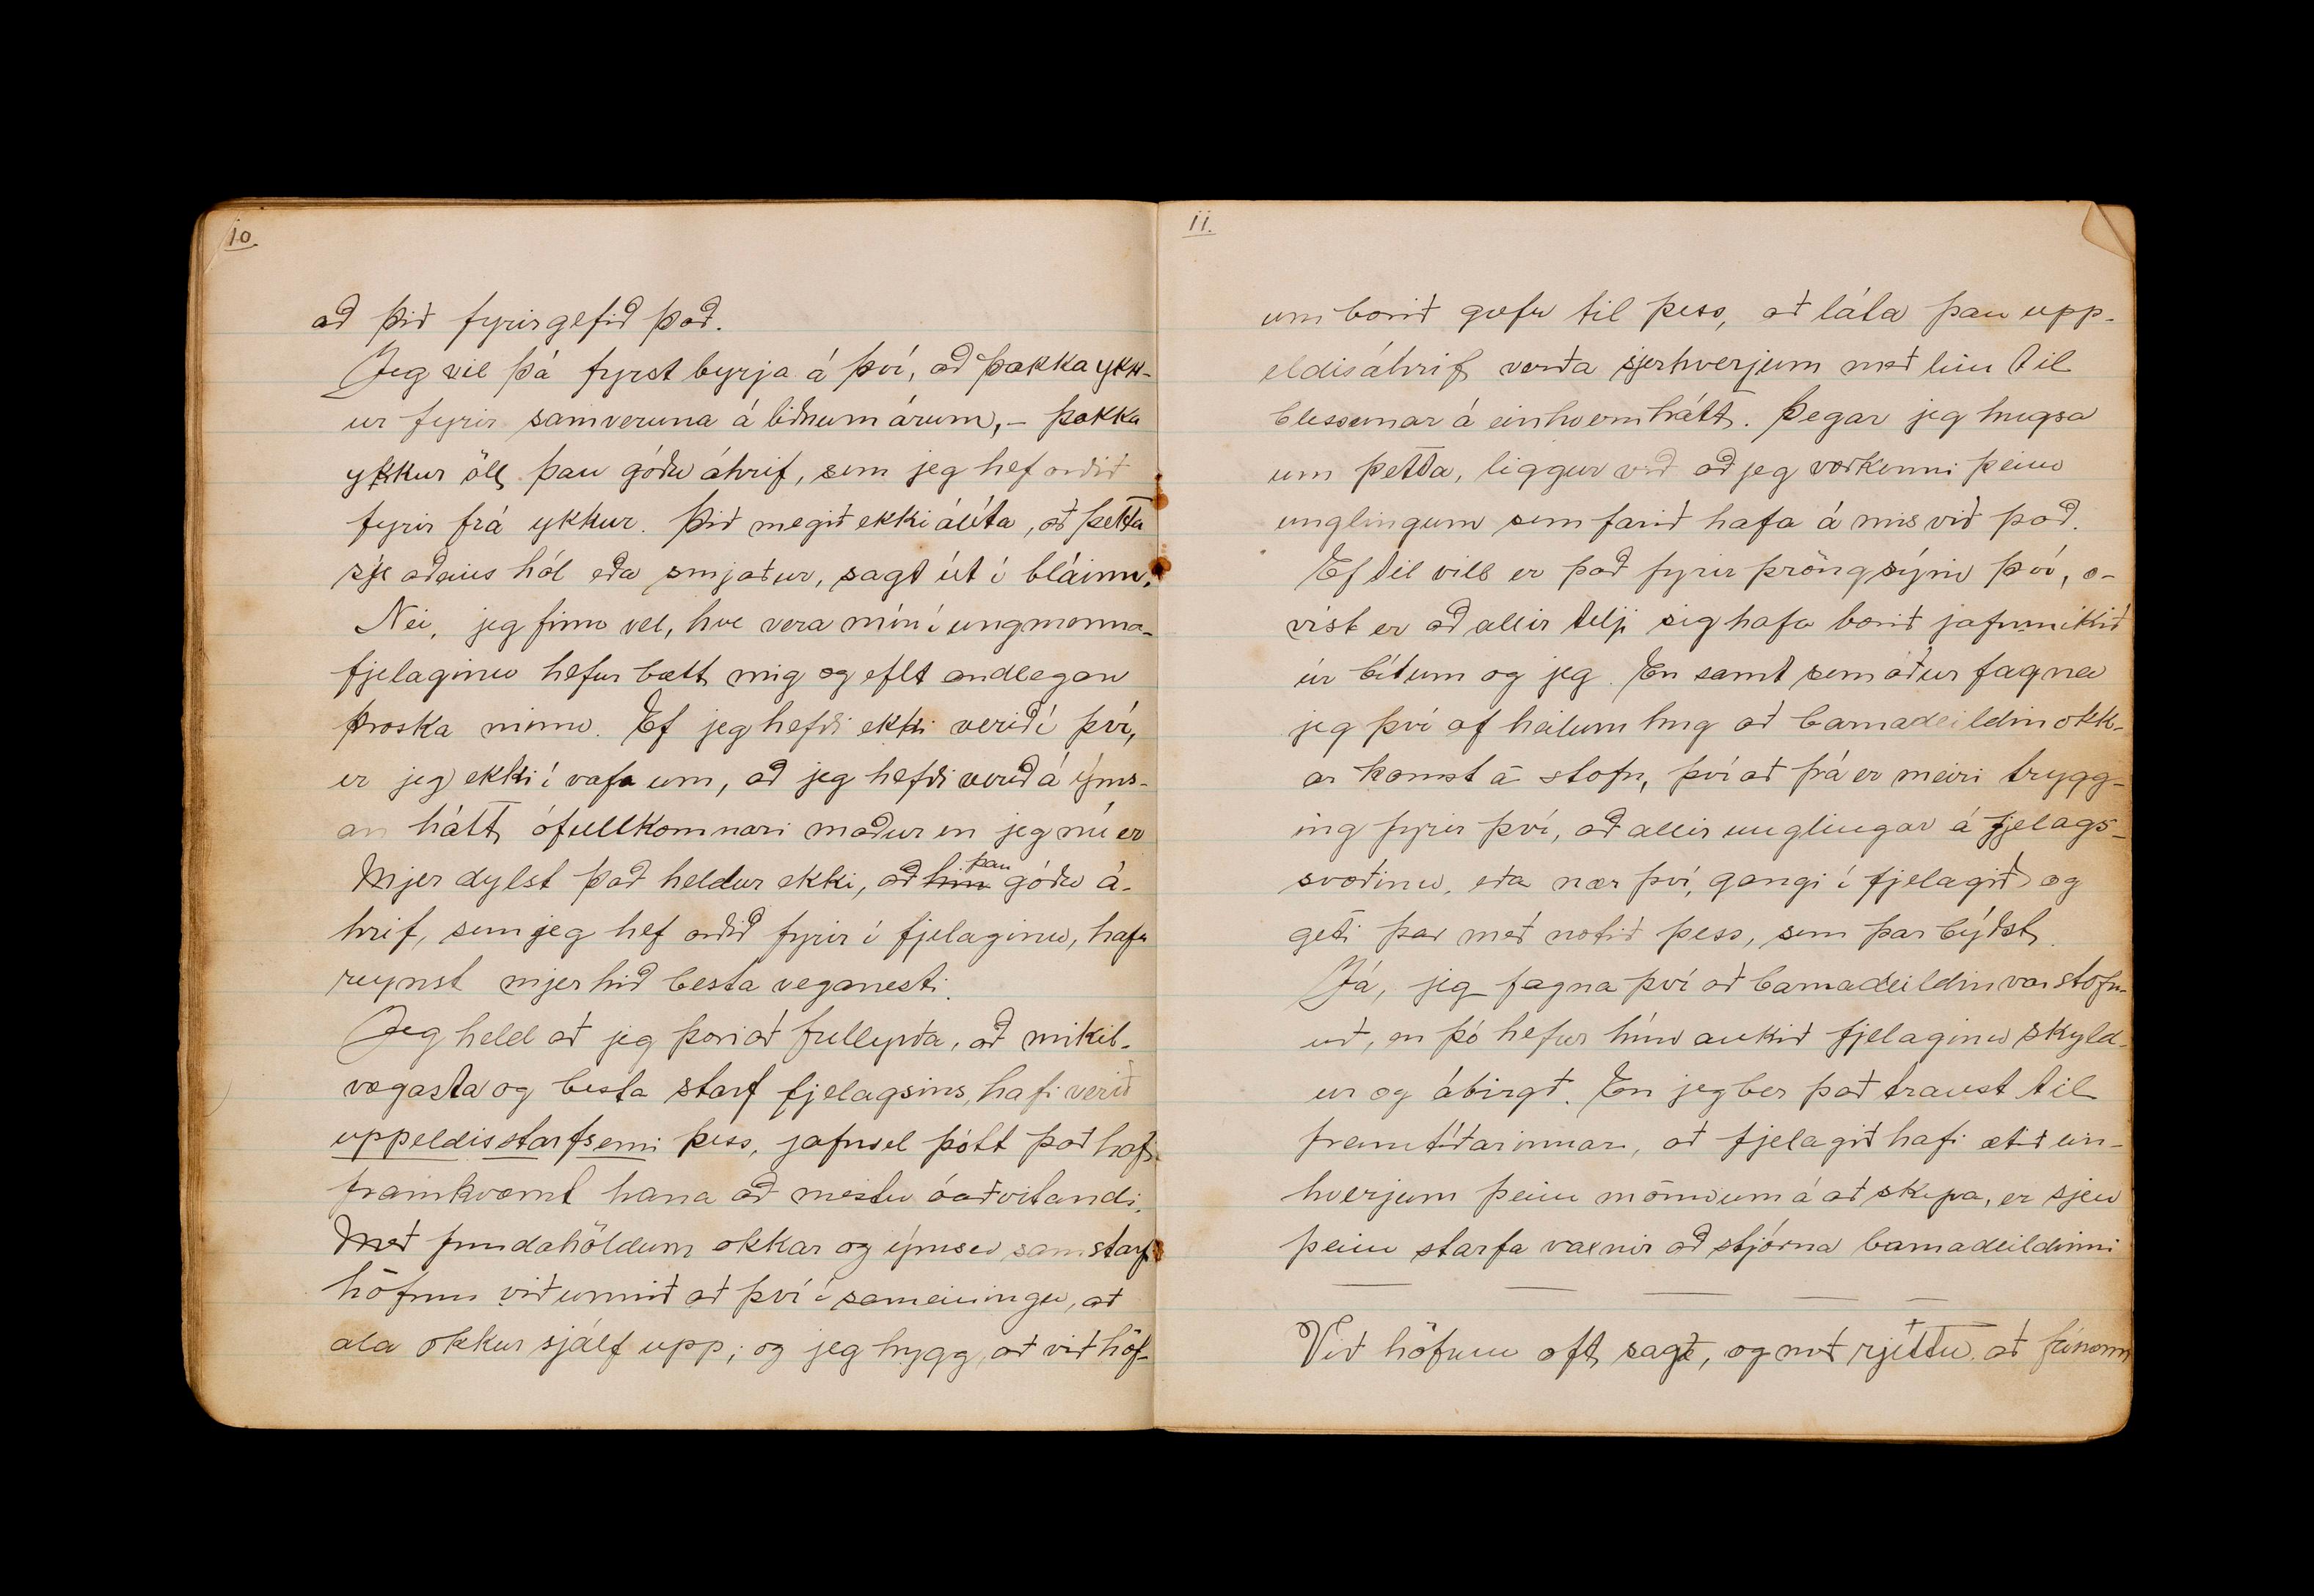 10.
að þið fyrirgefið það.
Jeg vil þá fyrst byrja á því, að þakka ykk-
ur fyrir samveruna á liðnum árum, - þakka
ykkur öll þau góðu áhrif, sem jeg hef orðið
fyrir frá ykkur. Þið megið ekki álíta, að þetta
sje aðeins hól eða smjaður, sagt út í bláinn.
Nei, jeg finn vel, hve vera mín í ungmenna-
fjelaginu hefur bætt mig og eflt andlegan
þroska minn. Ef jeg hefði ekki verið í því,
er jeg ekki í vafa um, að jeg hefði verið á ýms-
an hátt ófullkomnari maður en jeg nú er
Mjer dylst það heldur ekki, að hin þau góðu á-
hrif, sem jeg hef orðið fyrir í fjelaginu, hafa
reynst mjer hið besta veganesti.
Jeg held að jeg þori að fullyrða, að mikil-
vægasta og besta starf fjelagsins, hafi verið
uppeldisstarfsemi þess, jafnvel þótt það hafi
framkvæmt hana að mestu óaðvitandi.
Með fundahöldum okkar og ýmsu samstarfi
höfum við unnið að því í sameiningu, að
ala okkur sjálf upp; og jeg hygg, að við höf-
11.
um borið gæfu til þess, að láta þau upp-
eldisáhrif verða sjerhverjum meðlim til
blessunar á einhvern hátt. Þegar jeg hugsa
um þetta, liggur við að jeg vorkenni þeim
unglingum sem farið hafa á mis við það.
Ef til vill er það fyrir þröngsýni því, ó-
víst er að allir telji sig hafa borið jafnmikið
úr bítum og jeg. En samt sem áður fagna
jeg því af heilum hug að barnadeildin okk-
ar komst á stofn, því að þá er meiri trygg-
ing fyrir því, að allir unglingar á fjelags-
svæðinu, eða nær því, gangi í fjelagið og
geti þar með notið þess, sem þar býðst.
Já, jeg fagna því að barnadeildin var stofn-
uð, en þó hefur hún aukið fjelaginu skyld-
ur og ábirgð. En jeg ber það traust til
framtíðarinnar, að fjelagið hafi ætíð ein-
hverjum þeim mönnum á að skipa, er sjeu
þeim starfa vaxnir að stjórna barnadeildinni
Við höfum oft sagt, og með rjettu að